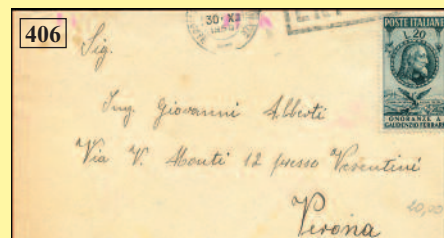 406
30·XI
POSTE ITALIANE
L.20
ONORANZE A
GAUDENZIO FERRARI
Sig.
Ing. Giovanni Alberti
Via V. Monti 12 presso Vesentini
Verona
20,00